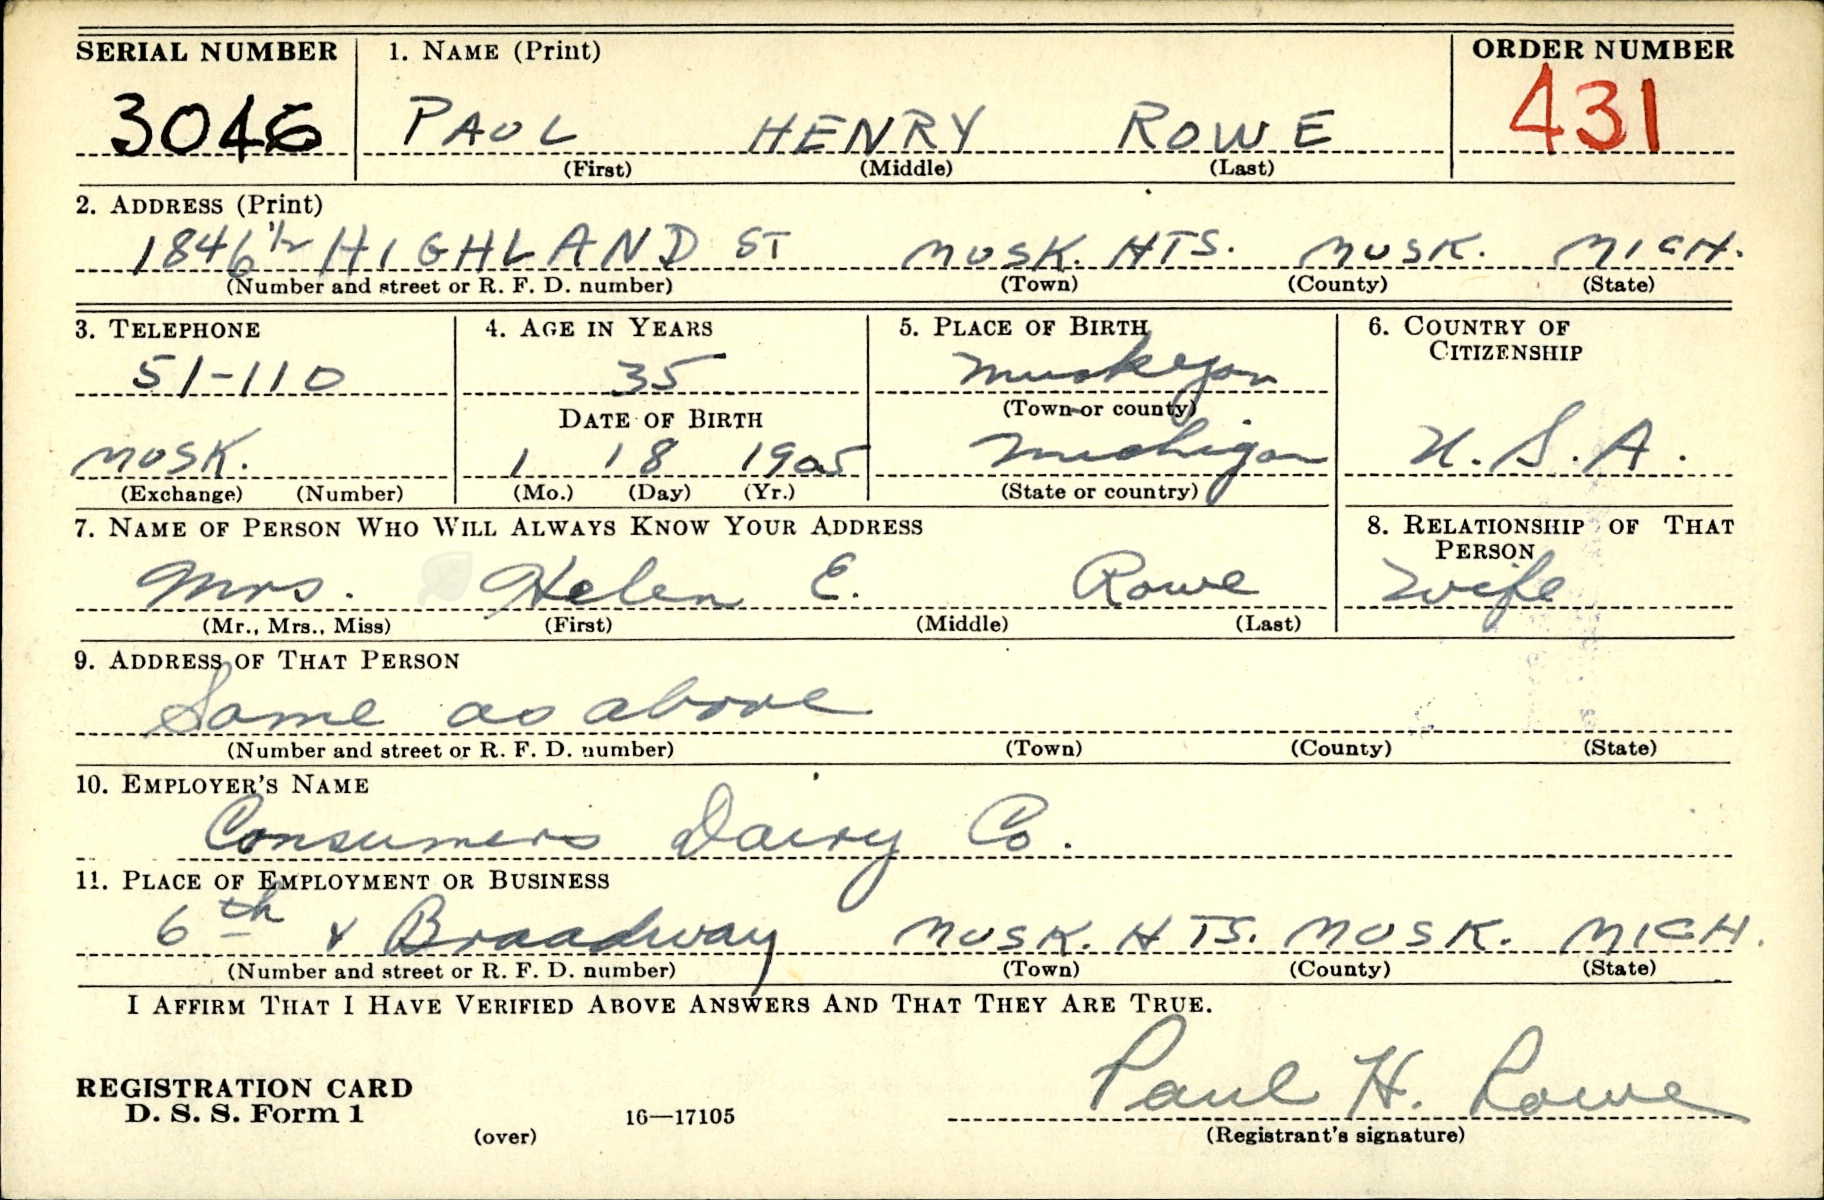 SERIAL NUMBER 1. NAME (Print) ORDER NUMBER
3046 PAUL HENRY ROWE 431
(First) (Middle) (Last)
2. ADDRESS (Print)
1846 1/2 HIGHLAND ST MUSK. HTS. MUSK. MICH.
(Number and street or R. F. D. number) (Town) (County) (State)
3. TELEPHONE 4. AGE IN YEARS 5. PLACE OF BIRTH 6. COUNTRY OF CITIZENSHIP
51-110 35 Muskegon
DATE OF BIRTH (Town or county)
MUSK. 1 18 1905 Michigan U.S.A.
(Exchange) (Number) (Mo.) (Day) (Yr.) (State or country)
7. NAME OF PERSON WHO WILL ALWAYS KNOW YOUR ADDRESS 8. RELATIONSHIP OF THAT PERSON
Mrs. Helen E. Rowe Wife
(Mr., Mrs., Miss) (First) (Middle) (Last)
9. ADDRESS OF THAT PERSON
Same as above
(Number and street or R. F. D. number) (Town) (County) (State)
10. EMPLOYER'S NAME
Consumers Dairy Co.
11. PLACE OF EMPLOYMENT OR BUSINESS
6th & Broadway MUSK. HTS. MUSK. MICH.
(Number and street or R. F. D. number) (Town) (County) (State)
I AFFIRM THAT I HAVE VERIFIED ABOVE ANSWERS AND THAT THEY ARE TRUE.
Paul H. Rowe
REGISTRATION CARD
D. S. S. Form 1 16—17105
(over) (Registrant's signature)